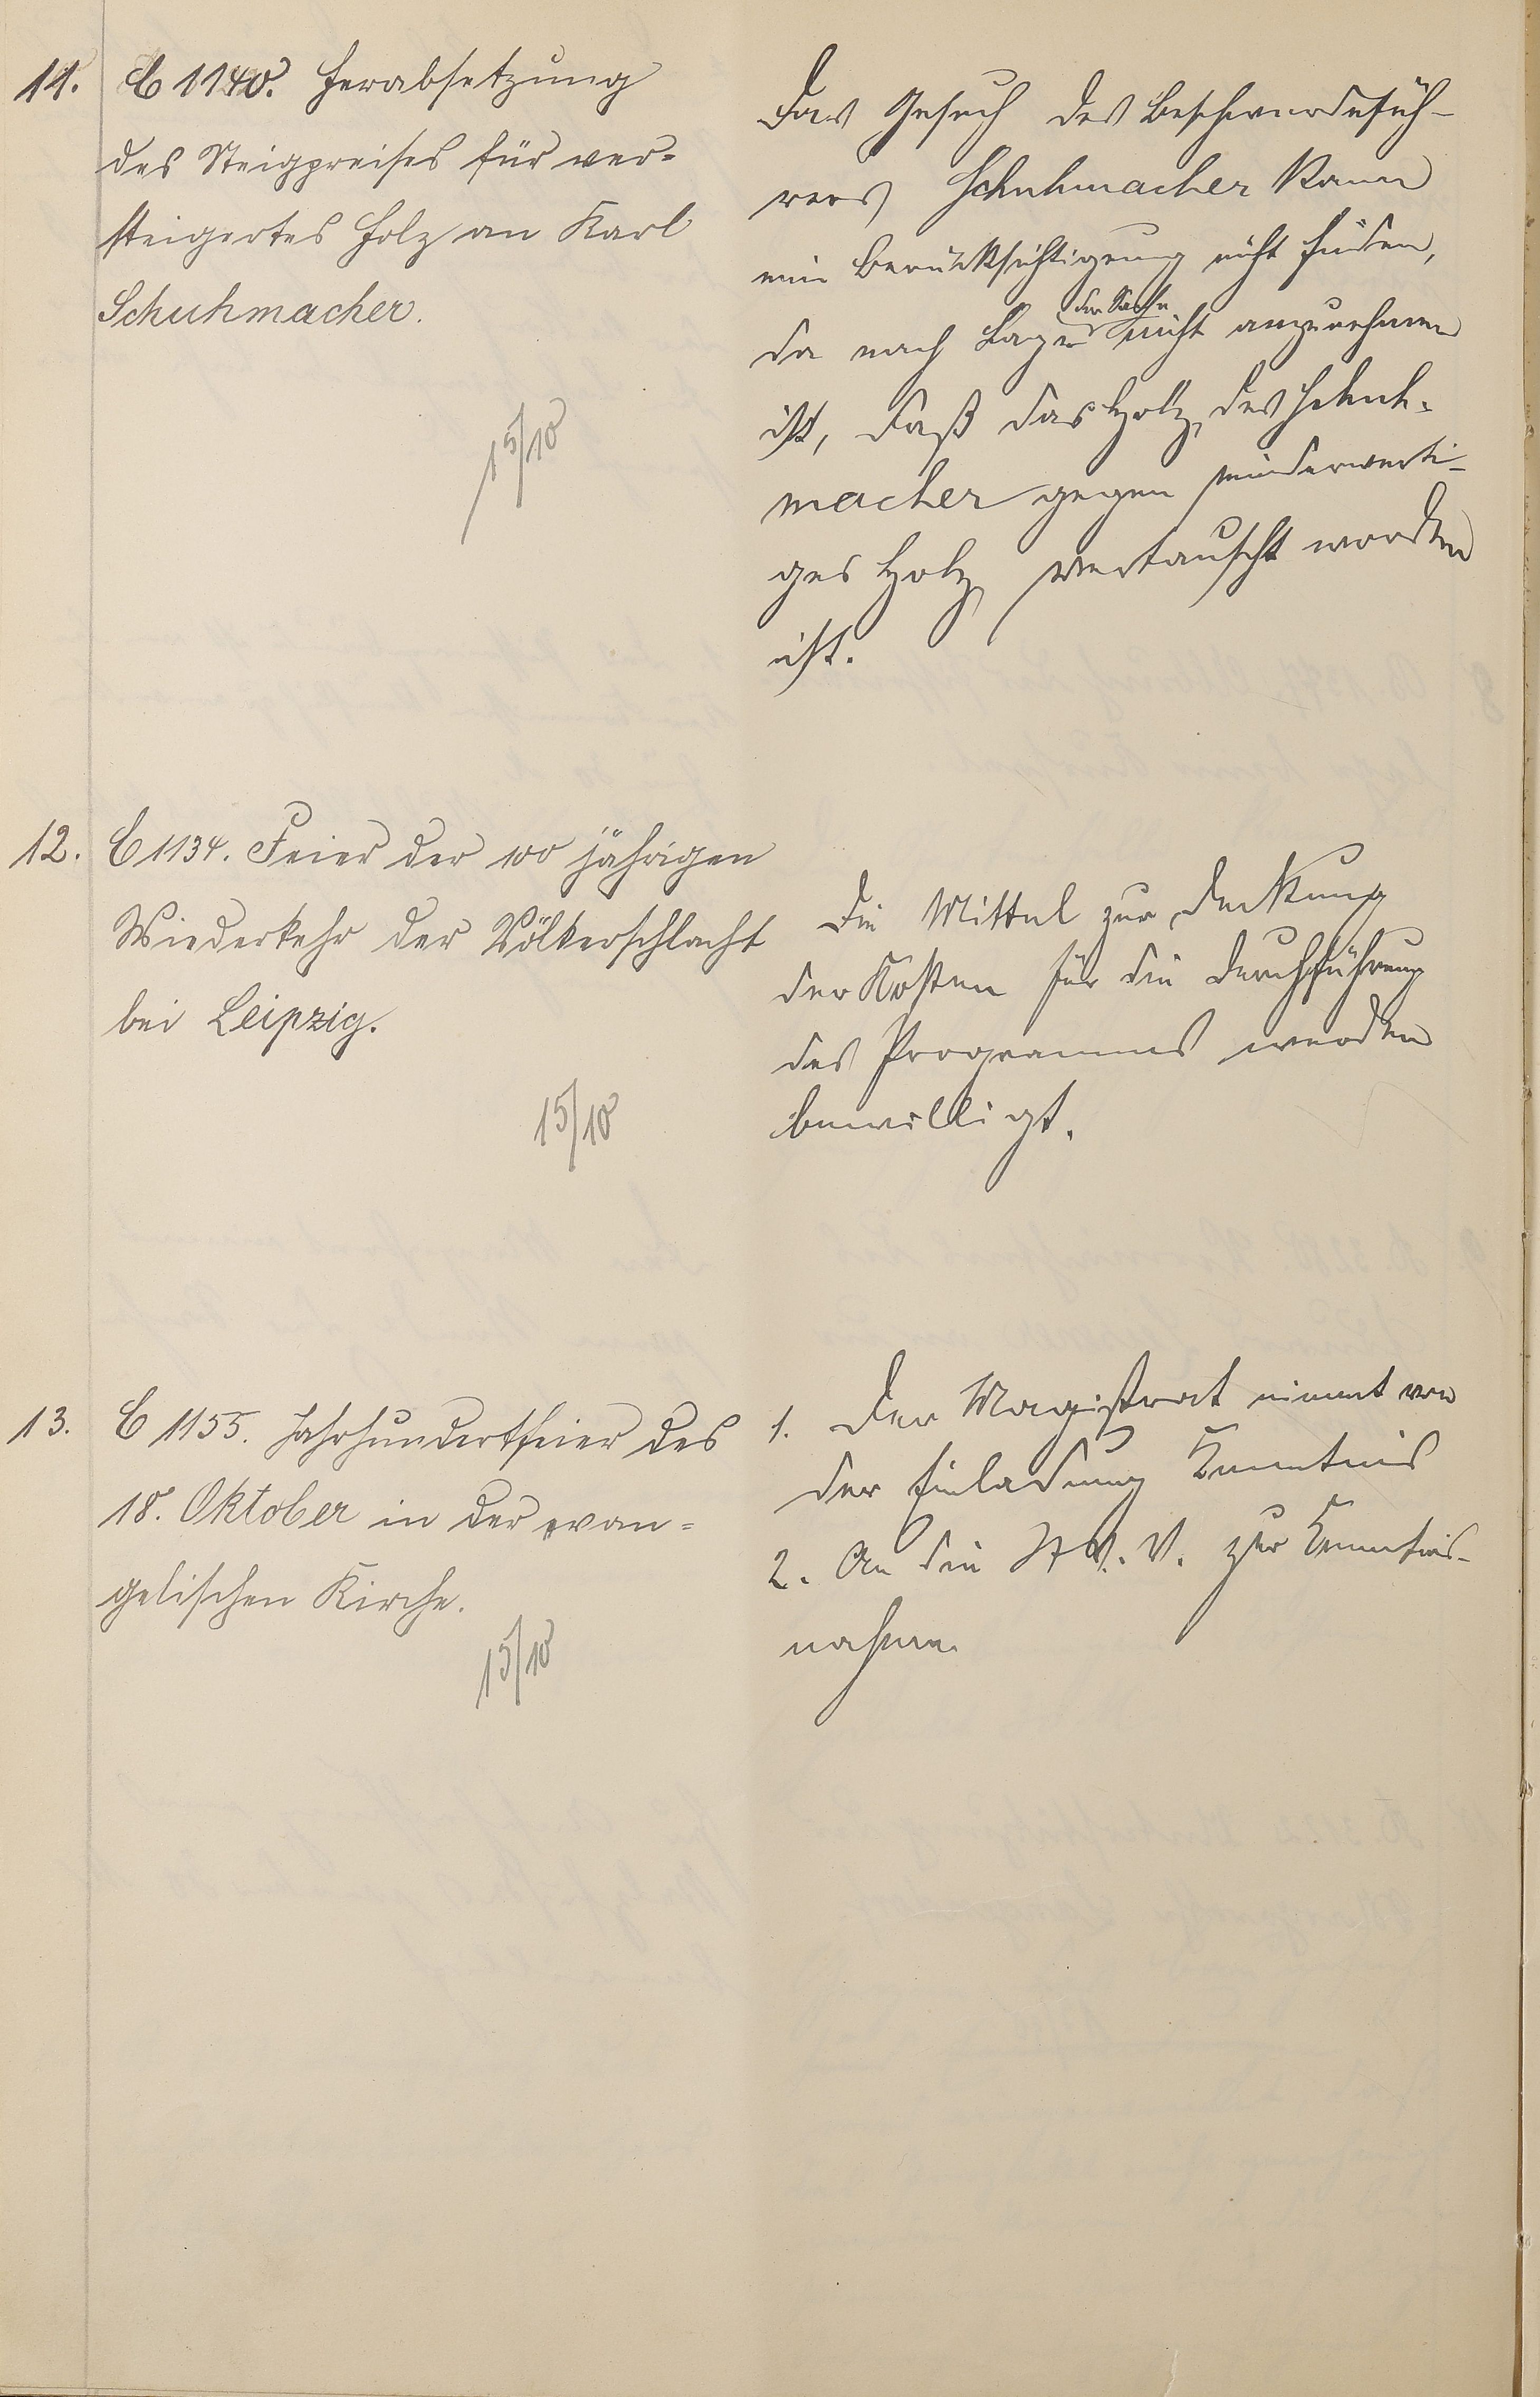 11. C 1140. Herabsetzung
des Steigpreises für ver-
steigertes Holz an Karl
Schuhmacher.
15/10
Das Gesuch des Beschwerdefüh-
rers Schuhmacher kann
eine Berücksichtigung nicht finden,
da nach Lage der Sache nicht anzunehmen
ist, daß das Holz des Schuh-
macher gegen minderwerti-
ges Holz vertauscht worden
ist.
12. C 1134. Feier der 100 jährigen
Wiederkehr der Völkerschlacht
bei Leipzig.
15/10
Die Mittel zur Deckung
der Kosten für die Durchführung
des Programms werden
bewilligt.
13. C 1155. Jahrhundertfeier des
18. Oktober in der evan-
gelischen Kirche.
15/10
1. Der Magistrat nimmt von
der Einladung Kenntnis
2. An die St. V. V. zur Kenntnis-
nahme.